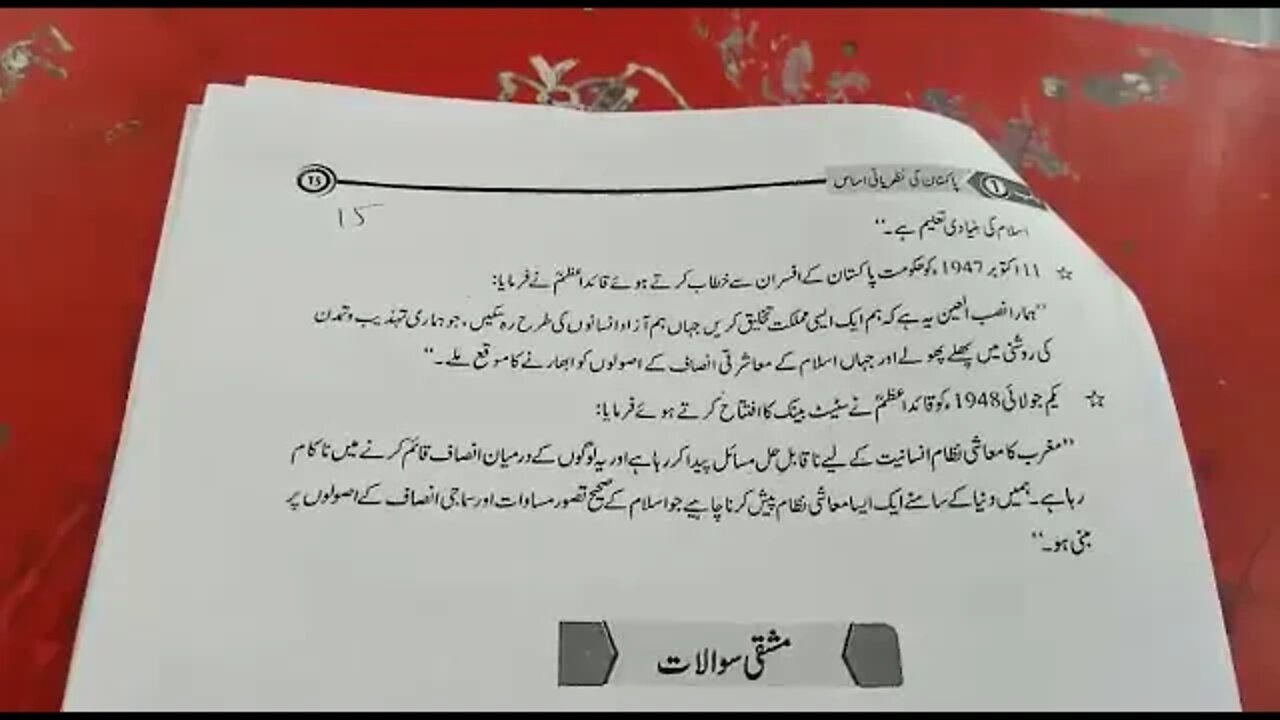 1 پاکستان کی نظریاتی اساس 15
15
اسلام کی بنیادی تعلیم ہے۔“
☆ 11 اکتوبر 1947ء کو حکومت پاکستان کے افسران سے خطاب کرتے ہوئے قائداعظمؒ نے فرمایا:
”ہمارا نصب العین یہ ہے کہ ہم ایک ایسی مملکت تخلیق کریں جہاں ہم آزاد انسانوں کی طرح رہ سکیں، جو ہماری تہذیب و تمدن
کی روشنی میں پھلے پھولے اور جہاں اسلام کے معاشرتی انصاف کے اصولوں کو ابھارنے کا موقع ملے۔“
☆ یکم جولائی 1948ء کو قائداعظمؒ نے سٹیٹ بینک کا افتتاح کرتے ہوئے فرمایا:
”مغرب کا معاشی نظام انسانیت کے لیے ناقابل حل مسائل پیدا کر رہا ہے اور یہ لوگوں کے درمیان انصاف قائم کرنے میں ناکام
رہا ہے۔ ہمیں دنیا کے سامنے ایک ایسا معاشی نظام پیش کرنا چاہیے جو اسلام کے صحیح تصور مساوات اور سماجی انصاف کے اصولوں پر
مبنی ہو۔“
مشقی سوالات